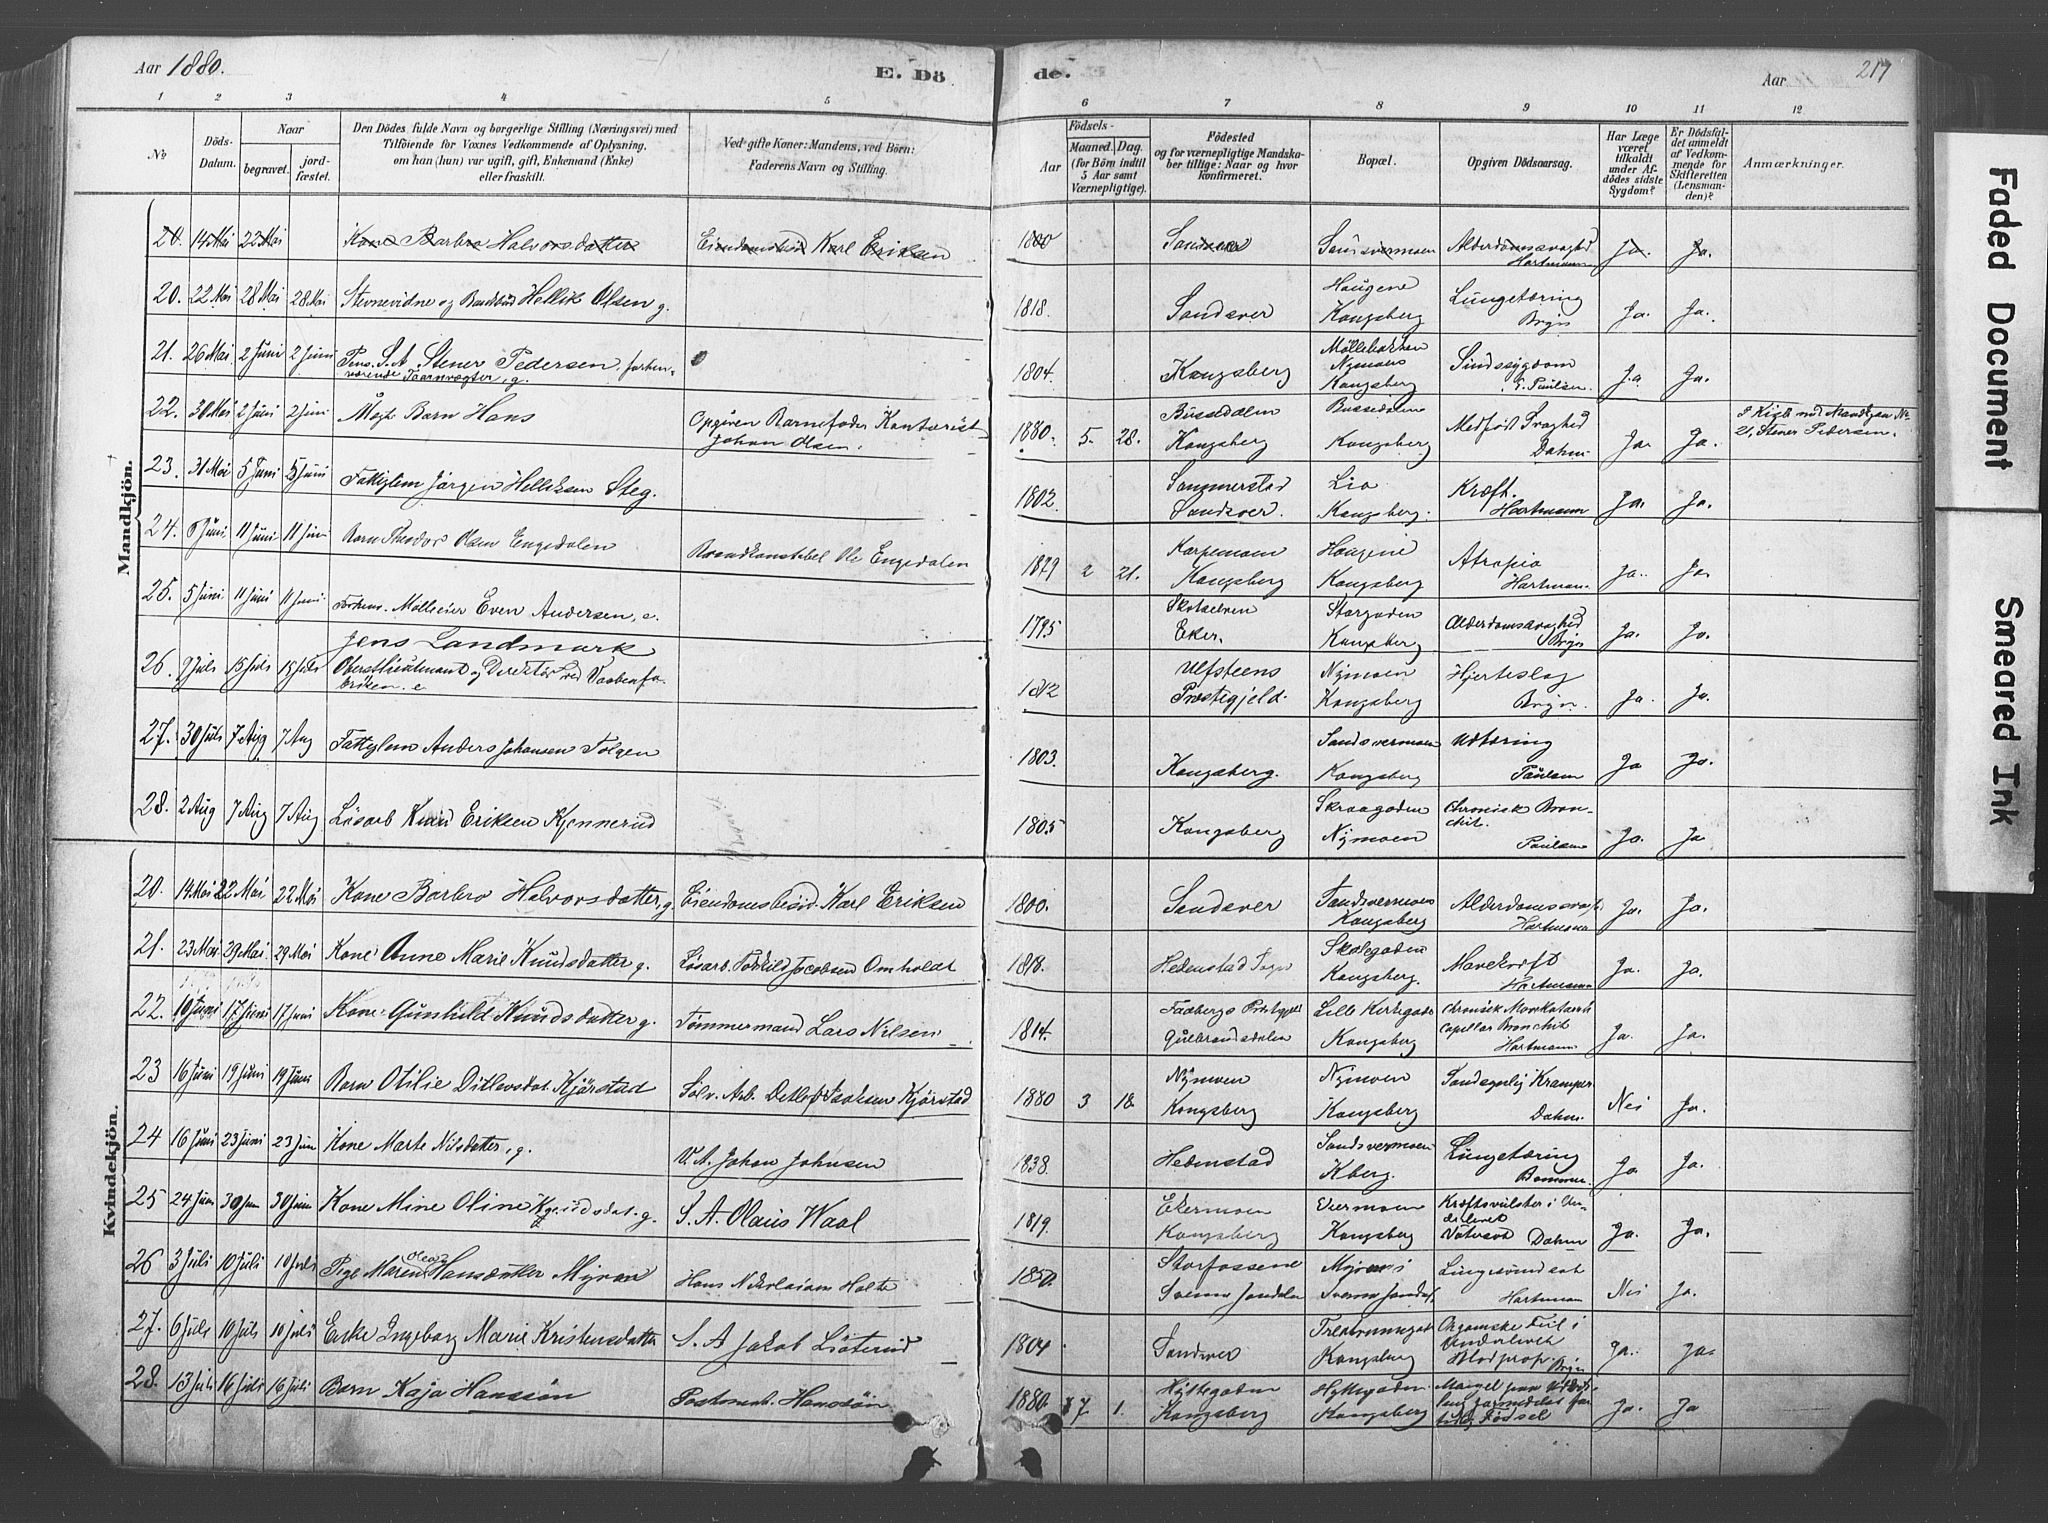 Aar 1880.
E. Dö
de.
Aar
217
1 2 3 4 5 6 7 8 9 10 11 12
No
Döds-
Datum.
Naar
begravet.
jord-
fæstet.
Den Dödes fulde Navn og borgerlige Stilling (Næringsvei) med
Tilföiende for Voxnes Vedkommende af Oplysning,
om han (hun) var ugift, gift, Enkemand (Enke)
eller fraskilt.
Ved gifte Koner: Mandens, ved Börn:
Faderens Navn og Stilling.
Födsels-
Aar
Maaned. Dag.
(for Börn indtil
5 Aar samt
Værnepligtige).
Födested
og for værnepligtige Mandska-
ber tillige: Naar og hvor
konfirmeret.
Bopæl.
Opgiven Dödsaarsag.
Har Læge
været
tilkaldt
under Af-
dödes sidste
Sygdom?
Er Dödsfal-
det anmeldt
af Vedkom-
mende for
Skifteretten
(Lensman-
den)?
Anmærkninger.
Mandkjön.
20. 14 Mai 22 Mai Kone Barbro Halvorsdatter Eiendomsbesid Karl Eriksen 1800 Sandsver Sandsvermoen Alderdomssvaghed Hartmann Ja. Ja.
20. 22 Mai 28 Mai 28 Mai Stevnevidne og Hellik Olsen g. 1818. Sandsver Haugene Kongsberg Lungetæring Ja. Ja.
21. 26 Mai 2 Juni 2 Juni Pens. S. A. Stener Pedersen, forhen-
værende Taarnvægter, g. 1804. Kongsberg Nymoens Kongsberg Sindssygdom Paulsen Ja Ja.
22. 30 Mai 2 Juni 2 Juni Barn Hans Opgiven Barnefader Kontorist
Johan Olsen. 1880. 5. 28. Bussedalen Kongsberg Bussedalen Kongsberg Medfödt Svaghed Dahm Ja. Ja. Mandkjøn No
21, Stener Pedersen.
23. 31 Mai 5 Juni 5 Juni Fattiglem Jörgen Helliksen Steg. 1802. Sandsver. Lia Kongsberg. Kræft. Hartmann Ja. Ja.
24. 6 Juni 11 Juni 11 Juni Barn Theodor Olsen Engedalen Brandkonstabel Ole Engedalen 1879 2 21. Karpemoen Kongsberg Haugene Kongsberg Atropia Hartman Ja. Ja.
25. 5 Juni 11 Juni 11 Juni Forhens. Mölleeier Even Andersen, e. 1795 Skotselven Eker. Storgaden Kongsberg Alderdomssvaghed Ja. Ja.
Jens Landmark
26. 9 Juli 15 Juli 15 Juli Oberstlieutnant og Direktör ved Vaabenfa-
briken. e 1812 Ulfsteens Præstegjeld. Nymoen Kongsberg Hjerteslag Ja. Ja.
27. 30 Juli 7 Aug 7 Aug Fattiglem Anders Johansen Tolgen 1803. Kongsberg. Sandsvermoen Kongsberg Udtæring Paulsen Ja Ja.
28. 2 Aug 7 Aug 7 Aug Lösarb Knud Eriksen Kjennerud 1805 Kongsberg Skraagaden Nymoen Chronisk Bron-
chit. Paulsen Ja. Ja
Kvindekjön.
20. 14 Mai 22 Mai 22 Mai Kone Barbro Halvorsdatter, g. Eiendomsbesid. Karl Eriksen 1800. Sandsver Sandsvermoen Kongsberg Hartmann Ja. Ja.
21. 23 Mai 29 Mai 29 Mai Kone Anne Marie Knudsdatter g. Lösarb. Torkild Jacobsen Omholdt 1818. Hedenstad Sogn Skolegaden Kongsberg. Mavekræft Hartmann Ja. Ja.
22. 10 Juni 17 Juni 17 Juni Kone Gunhild Knudsdatter g. Tömmermand Lars Nilsen 1814. Faabergs Gulbrandsdalen Lille Kirkegade Kongsberg Chronisk
Capillær Bronchit Hartmann Ja. Ja.
23 16 Juni 19 Juni 19 Juni Barn Otilie Ditlevsdat. Kjörstad Sölv. Arb. Detlef Isaksen Kjörstad 1880 3 18. Nymoen Kongsberg Nymoen Kongsberg Sandsynlig Kramper Dahm Nei Ja.
24 16 Juni 23 Juni 23 Jun Kone Marte Nilsdatter, g. V. A. Johan Johnsen 1838. Hedenstad Sandsvermoen Kberg. Lungetæring Ja Ja.
25 24 Juni 30 Jun 30 Juni Kone Mine Oline g. S. A. Olaus Waal 1819. Ekermoen Kongsberg Kongsberg Kræftsvulster i Un-
derlivet Dahm Ja. Ja.
26 3 Juli 10 Juli 10 Juli Pige Maren Olea Hansdatter Myran Hans Nikolaisen Holte 1850. Storfossene Svenne Jondalen Hartman Nei Ja.
27. 6 Juli 10 Juli 10 Juli Enke Ingeborg Marie Kristensdatter S. A Jakob 1804 Sandsver Kongsberg Organiske Feil i
Underlivet
Blodprop. Ja. Ja.
28. 13 Juli 16 Juli 16 Juli Barn Kaja Hanssön Postmest. Hanssön 1880. 7 1. Hyttegaden Kongsberg Hyttegaden Kongsberg Mangel paa
Födsel Ja. Ja
Faded Document
Smeared Ink